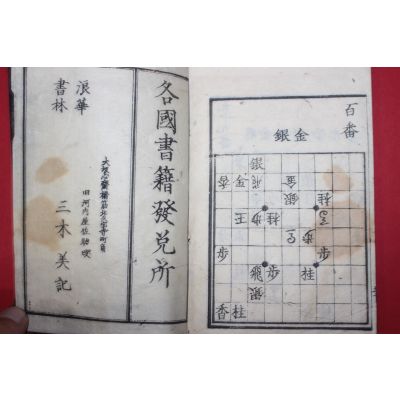 百番
銀金
銀
香 金 飛 金
銀 桂
王 桂 歩
歩
歩 歩
飛 桂
銀
香桂
各國書籍發兌所
大坂心齋橋筋北久宝寺町角
旧河内屋佐助叓
浪華
書林
三木美記